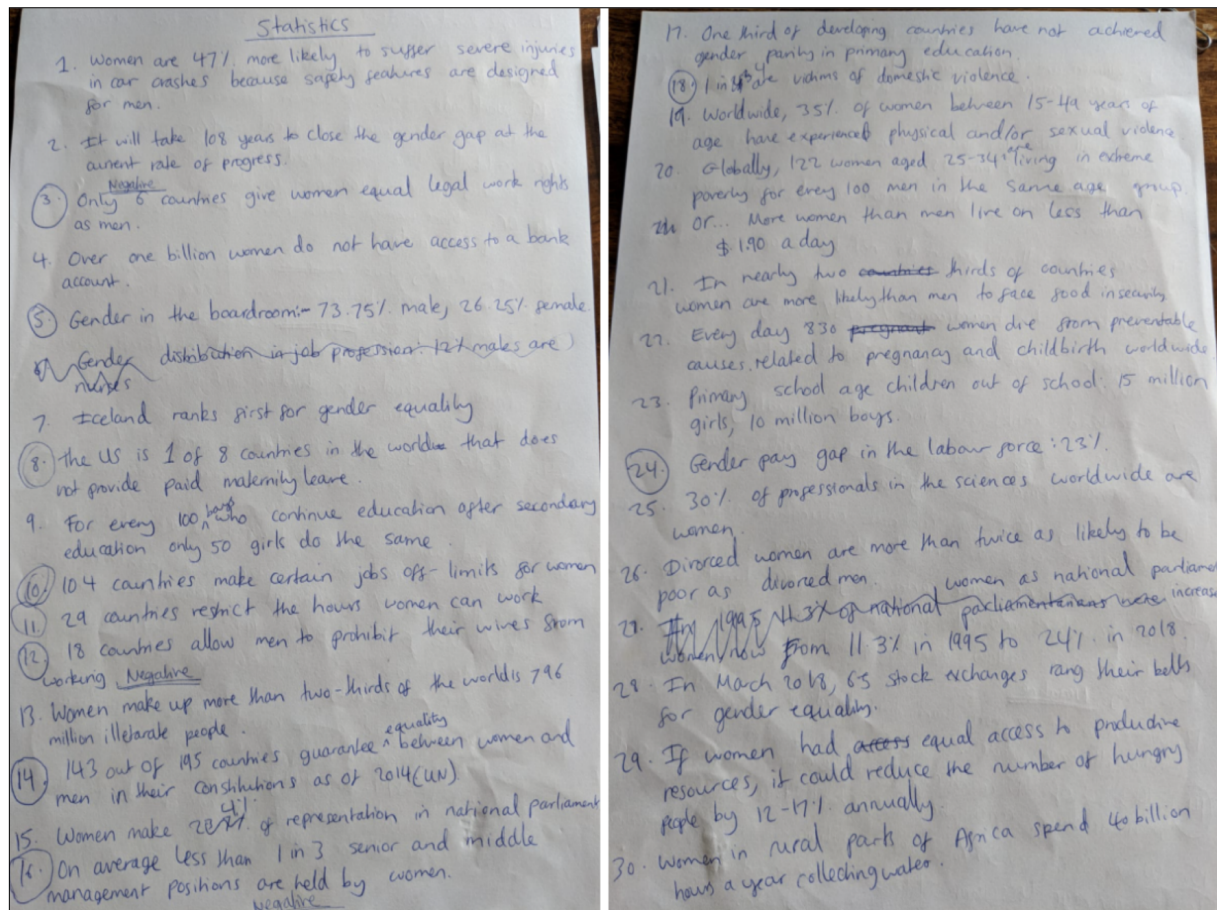 Statistics
1. Women are 47% more likely to suffer severe injuries
in car crashes because safety features are designed
for men.
2. It will take 108 years to close the gender gap at the
current rate of progress.
Negative
3. Only 6 countries give women equal legal work rights
as men.
4. Over one billion women do not have access to a bank
account.
5. Gender in the boardroom:- 73.75% male, 26.25% female
Gender distribution in job profession: 12% males are
nurses
7. Iceland ranks first for gender equality
8. The US is 1 of 8 countries in the world that does
not provide paid maternity leave.
9. For every 100 boys who continue education after secondary
education only 50 girls do the same.
10. 104 countries make certain jobs off-limits for women
11. 29 countries restrict the hours women can work
12. 18 countries allow men to prohibit their wives from
working Negative
13. Women make up more than two-thirds of the world's 796
million illetarate people.
14. 143 out of 195 countries guarantee equality between women and
men in their constitutions as of 2014 (UN)
15. Women make 24% of representation in national parliament
16. On average less than 1 in 3 senior and middle
management positions are held by women.
Negative
17. One third of developing countries have not achieved
gender parity in primary education.
18. 1 in are victims of domestic violence.
19. Worldwide, 35% of women between 15-49 years of
age have experienced physical and/or sexual violence.
20. Globally, 122 women aged 25-34 are living in extreme
poverty for every 100 men in the same age group.
or... More women than men live on less than
$1.90 a day
21. In nearly two countries thirds of countries
women are more likely than men to face food insecurity
22. Every day 830 pregnant women die from preventable
causes related to pregnancy and childbirth worldwide
23. Primary school age children out of school: 15 million
girls, 10 million boys.
24. Gender pay gap in the labour force: 23%.
25. 30% of professionals in the sciences worldwide are
women.
26. Divorced women are more than twice as likely to be
poor as divorced men.
women as national parliament
27. In 1995 11.3% of national parliamentarians were increase
women, now From 11.3% in 1995 to 24% in 2018.
28. In March 2018, 65 stock exchanges rang their bells
for gender equality.
29. If women had access equal access to productive
resources, it could reduce the number of hungry
people by 12-17% annually.
30. Women in rural parts of Africa spend 40 billion
hours a year collecting water.